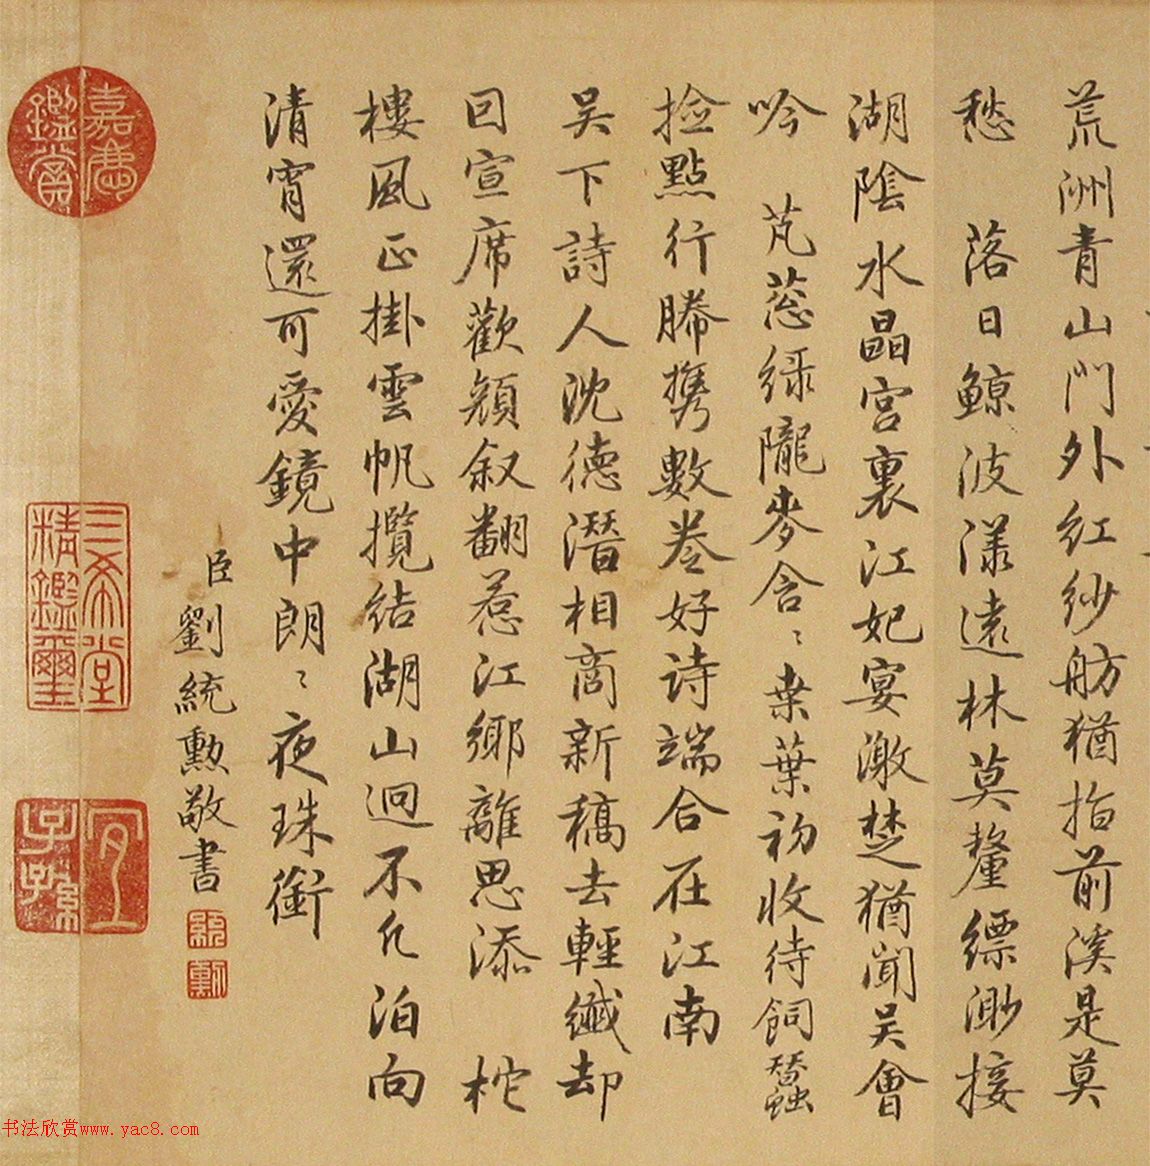 荒洲青山門外紅紗舫猶指前溪是莫
愁　落日鯨波漾遠林莫釐縹渺接
湖陰水晶宮裏江妃宴激楚猶聞吳會
吟　芃蕊綠隴麥含〻桒葉初收待飼蠶
撿點行幐攜數卷好詩端合在江南
吳下詩人沈德潛相商新稿去輕纖却
回宣席歡顏叙翻惹江鄉離思添　柁
樓風正掛雲帆攬結湖山迥不凡泊向
清宵還可愛鏡中朗〻夜珠銜
臣劉統勳敬書
統
勳
嘉慶
鑑賞
三希堂
精鑑璽
宜
子孫
书法欣赏www.yac8.com